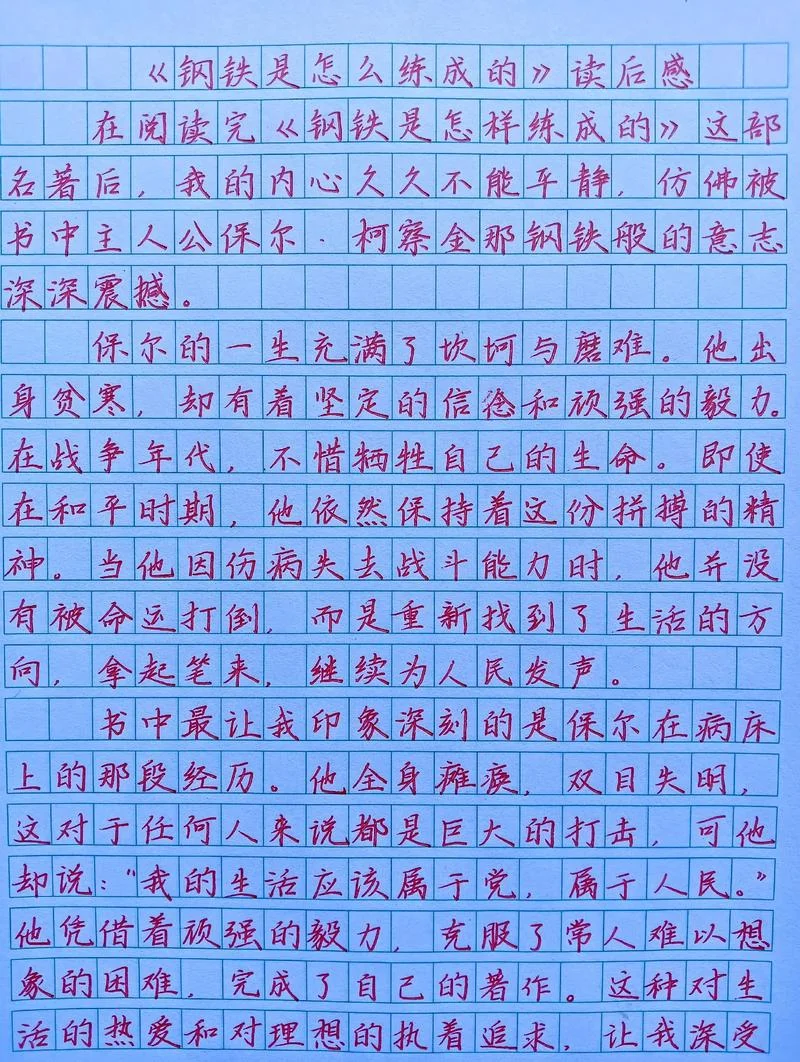 《钢铁是怎么练成的》读后感
在阅读完《钢铁是怎样练成的》这部
名著后，我的内心久久不能平静，仿佛被
书中主人公保尔·柯察金那钢铁般的意志
深深震撼。
保尔的一生充满了坎坷与磨难。他出
身贫寒，却有着坚定的信念和顽强的毅力。
在战争年代，不惜牺牲自己的生命。即使
在和平时期，他依然保持着这份拼搏的精
神。当他因伤病失去战斗能力时，他并没
有被命运打倒，而是重新找到了生活的方
向，拿起笔来，继续为人民发声。
书中最让我印象深刻的是保尔在病床
上的那段经历。他全身瘫痪，双目失明，
这对于任何人来说都是巨大的打击，可他
却说：“我的生活应该属于党，属于人民。”
他凭借着顽强的毅力，克服了常人难以想
象的困难，完成了自己的著作。这种对生
活的热爱和对理想的执着追求，让我深受